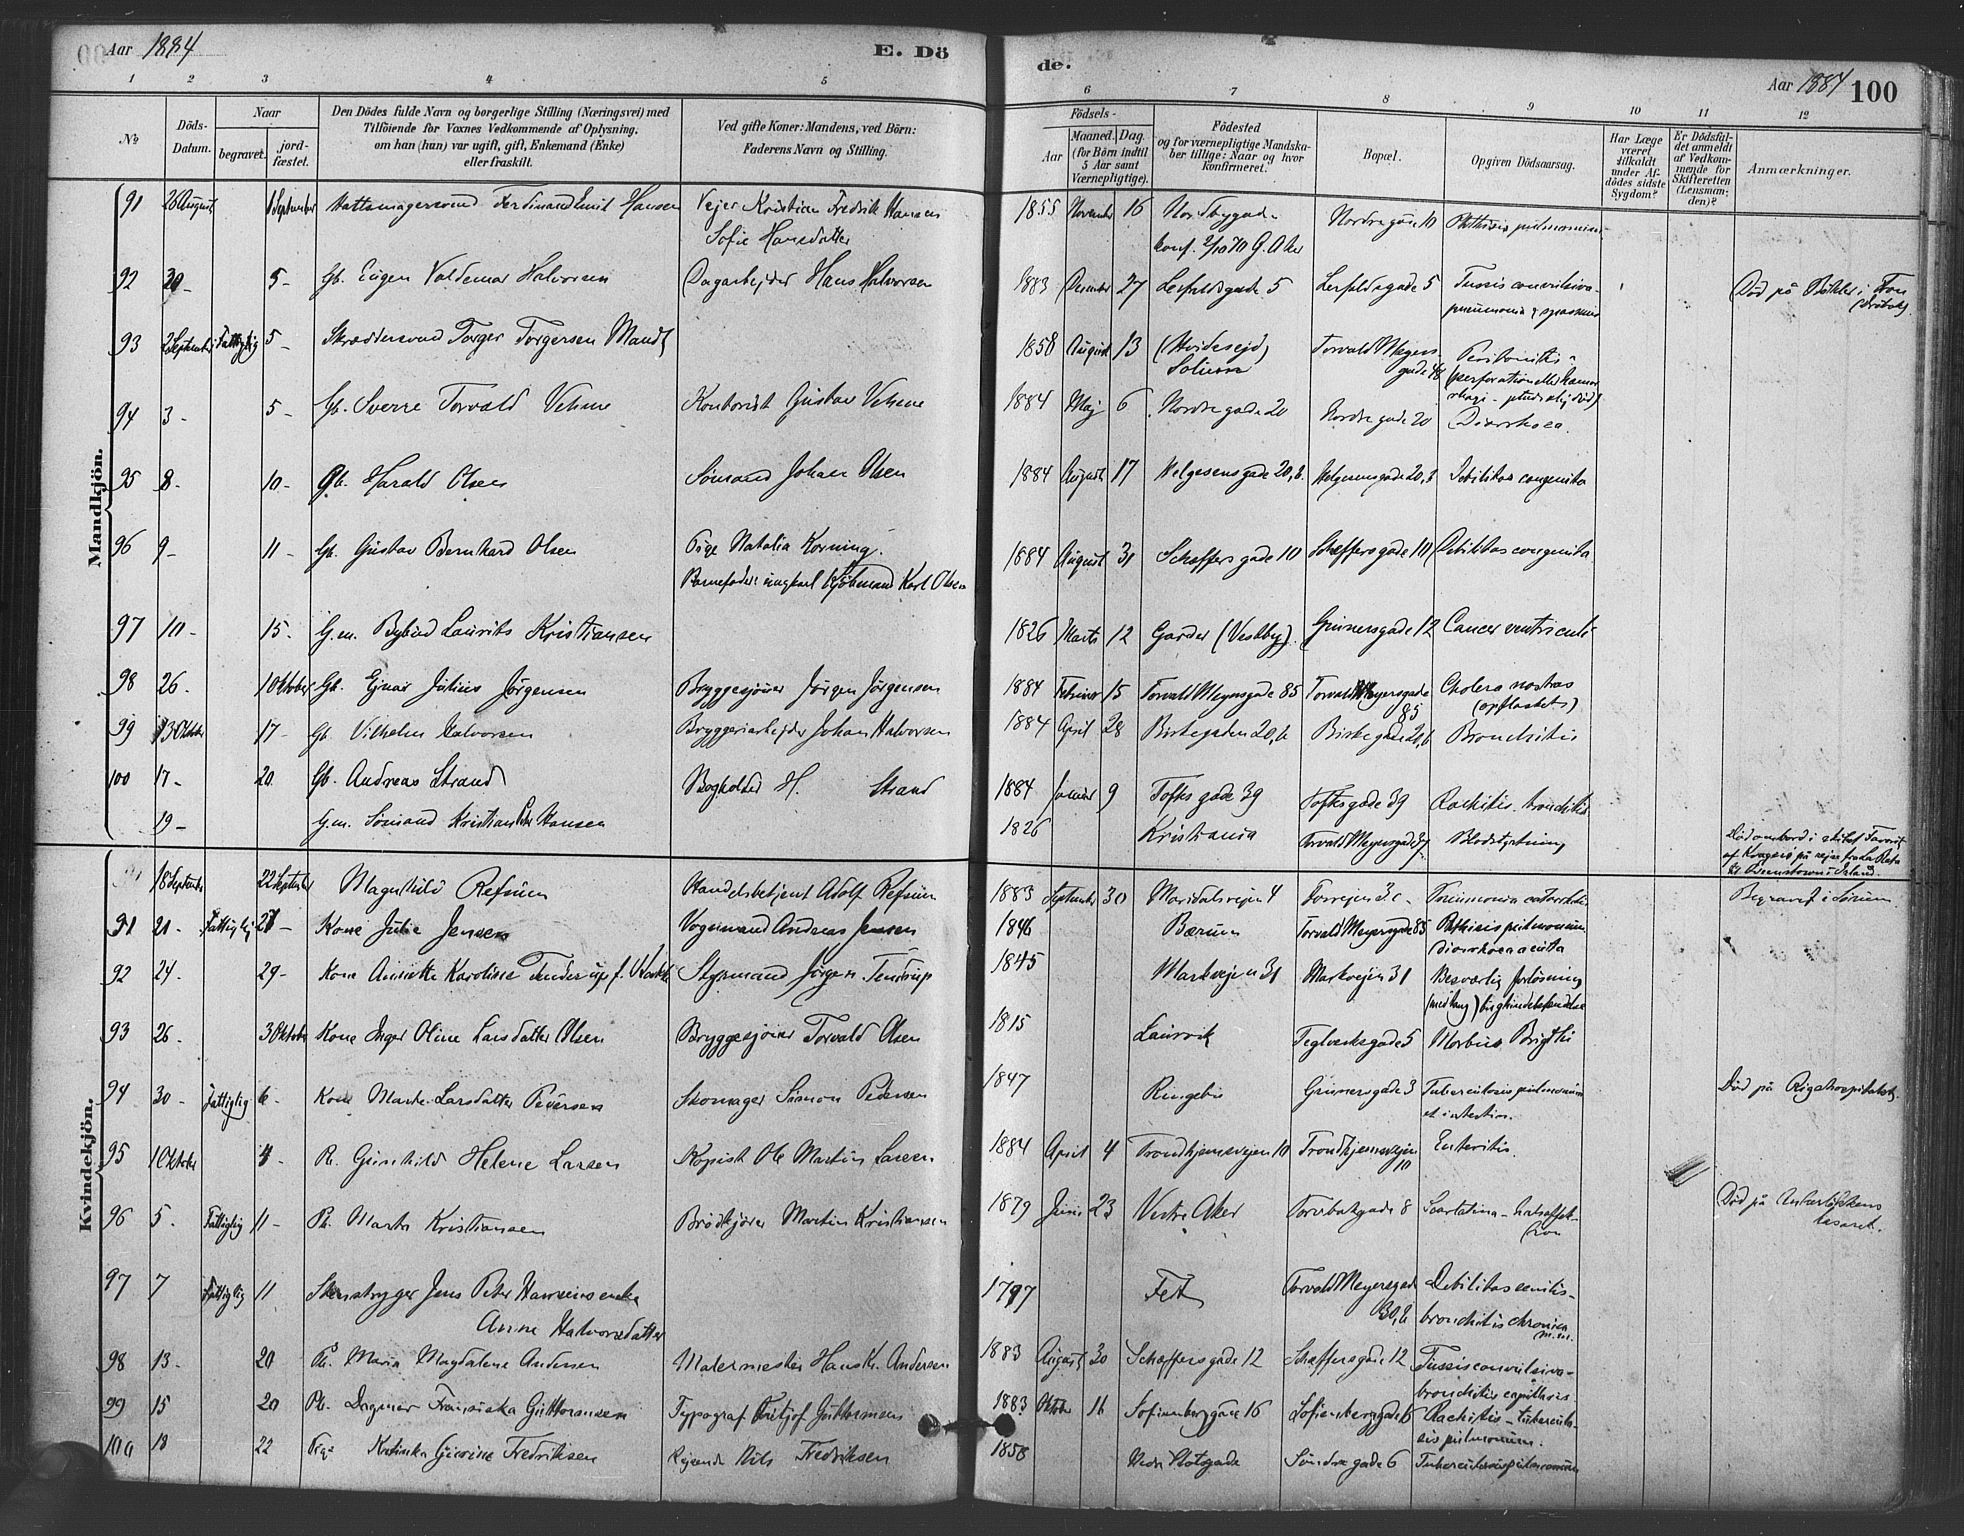 Aar 1884
E. Dö
de.
Aar 1884 100
1 2 3 4 5 6 7 8 9 10 11 12
No
Döds-Datum.
Naar
begravet.
jord-fæstet.
Den Dödes fulde Navn og borgerlige Stilling (Næringsvei) med
Tilföiende for Voxnes Vedkommende af Oplysning.
om han (hun) var ugift, gift, Enkemand (Enke)
eller fraskilt.
Ved gifte Koner: Mandens, ved Börn:
Faderens Navn og Stilling.
Födsels-
Aar
Maaned. Dag.
(for Börn indtil
5 Aar samt
Værnepligtige).
Födested
og for værnepligtige Mandska-
ber tillige: Naar og hvor
konfirmeret.
Bopæl.
Opgiven Dödsaarsag.
Har Læge
været
tilkaldt
under Af-
dödes sidste
Sygdom?
Er Dödsfal-
det anmeldt
af Vedkom-
mende for
Skifteretten
(Lensman-
den)?
Anmærkninger.
Mandkjön.
91 26 August 1 September Hattemagersvend Ferdinand Emil Hansen Vejer Kristian Fredrik Hansen 1855 November 16 Nordre gade 10 Phthisis pulmonum
Sofie Hansdatter konf. 2/10 70 G. Aker
92 5- Gb. Eugen Valdemar Halvorsen Dagarbejder Hans Halvorsen 1883 December 27 Lerfaldsgade 5 Lerfaldsgade 5 Tussis convulsiva- Död på
pneumonia & spasmus
93 2 September Fattiglig 5- Skræddersvend Torger Torgersen Mandt 1858 August 13 (Hvidesejd) Torvald Meyers Peritonitis
Solum gade 48
94 3- 5- Gb. Sverre Torvald Vehme Kontorist Gustav Vehme 1884 Maj 6 Nordre gade 20 Nordre gade 20 Diarrhoea.
95 8- 10- Gb. Harald Olsen Sömand Johan Olsen 1884 August 17 Helgesensgade 20, b. Helgesensgade 20, b Debilitas congenita
96 9- 11- Gb. Gustav Bernhard Olsen Pige Natalia Korning. 1884 August 31 Schæffers gade 10 Schæffersgade 10 Debilitas congenita
Barnefader: ungkarl Kjöbmand Karl Olsen
97 10- 15- G.m. Bybud Laurits Kristiansen 1826 Marts 12 Garder (Vestby). Grünersgade 12 Cancer ventriculi
98 26- 1 Oktober Gb. Ejnar Julius Jörgensen Bryggesjouer Jörgen Jörgensen 1884 Februar 15 Torvald Meyersgade 85 Torvald Meyersgade Cholera nostras
85 (opflasket)
99 13 Oktober 17- Gb. Vilhelm Halvorsen Bryggeriarbejder Johan Halvorsen 1884 April 28 Birkegaden 20, b Birkegade 20, b Bronchitis
100 17- 20 Gb. Andreas Strand Bogholder H. Strand 1884 Januar 9 Toftes gade 39 Toftesgade 39 Rachitis. bronchitis
19- G.m. Sömand Kristian Hansen 1826 Kristiania Torvald Meyersgade 37 Blodstyrtning Död ombord i skibet Favorit
af Kragerö på rejse fra La Plata
til Queenstown i Irland.
Kvindekjön.
18 September 22 September Magnhild Refsum Handelsbetjent Adolf Refsum 1883 September 30 Maridalsvejen 4 Pneumonia catarrhalis Begravet i Sörum
91 21- Fattiglig Kone Julie Jensen Vognmand Andreas Jensen 1846 Bærum Torvald Meyersgade 85 Phthisis pulmonum
Diarrhoea acuta
92 24- 29- Kone Annette Karoline Tenderup f. Styrmand Jörgen Tenderup 1845 Markvejen 31 Markvejen 31 Besværlig forlösning
93 26- 3 Oktober Kone Inger Oline Larsdatter Olsen Bryggesjouer Torvald Olsen 1815 Laurvik Teglverksgade 5 Morbus Brigthi
94 30- Fattiglig 6- Kone Marte Larsdatter Pedersen Skomager Simon Pedersen 1847 Ringebu Grünersgade 3 Tuberculosis pulmonum Död på Rigshospitalet.
et intestin.
95 1 Oktober 4- Pb. Gunhild Helene Larsen Kopist Ole Martin Larsen 1884 April 4 Trondhjemsvejen 10 Trondhjemsvejen Enteritis.
10
96 5- Fattiglig 11- Pb. Marte Kristiansen Brödkjörer Martin Kristiansen 1879 Juni 23 Vestre Aker Torvbakgade 8 Scarlatina - halsaffek- Död på Ankerlökkens
tion lasaret.
97 7 Fattiglig 11 Jens Peter Hansens enke 1797 Fet Torvald Meyersgade Debilitas senilis-
Anne Halvorsdatter 30, b bronchitis chronica
98 13- 20 Pb. Maria Magdalene Andersen Malermester Hans K. Andersen 1883 August 30 Schæffersgade 12 Schæffersgade 12 Tussis convulsiva-
bronchitis capillaris
99 15 20 Pb. Dagmar Fransiska Guttormsen Typograf Fritjof Guttormsen 1883 Oktober 16 Sofienberggade 16 Sofienberggade 16 Rachitis - tuberculo-
sis pulmonum.
100 18 22 Pige Katinka Fredriksen Rejsende Nils Fredriksen 1858 Nedre Slotsgade Söndre gade 6 Tuberculosis pulmonum